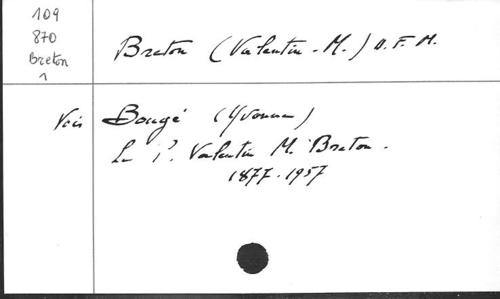 109
870
Breton
1
Breton (Valentin-M.) O.F.M.
Voir Bougé (Yvonne)
Le P. Valentin M. Breton.
1877-1957